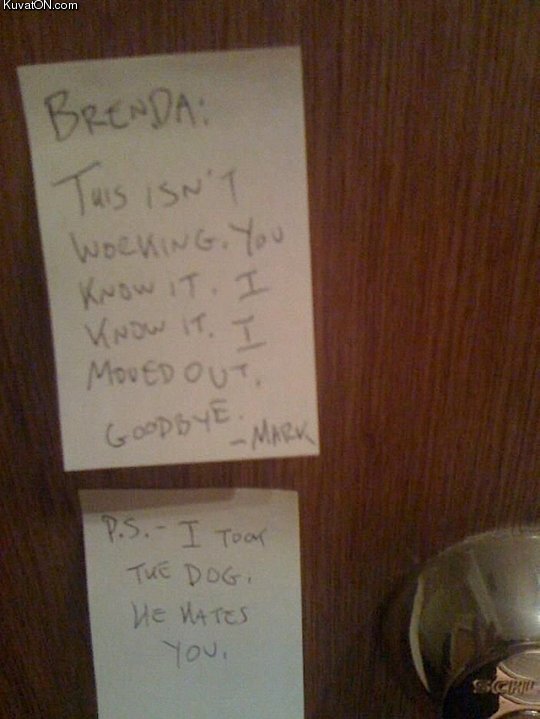 KuvatON.com
BRENDA:
THIS ISN'T
WORKING. YOU
KNOW IT. I
KNOW IT. I
MOVED OUT.
GOODBYE.
-MARK
P.S.- I TOOK
THE DOG.
HE HATES
YOU.